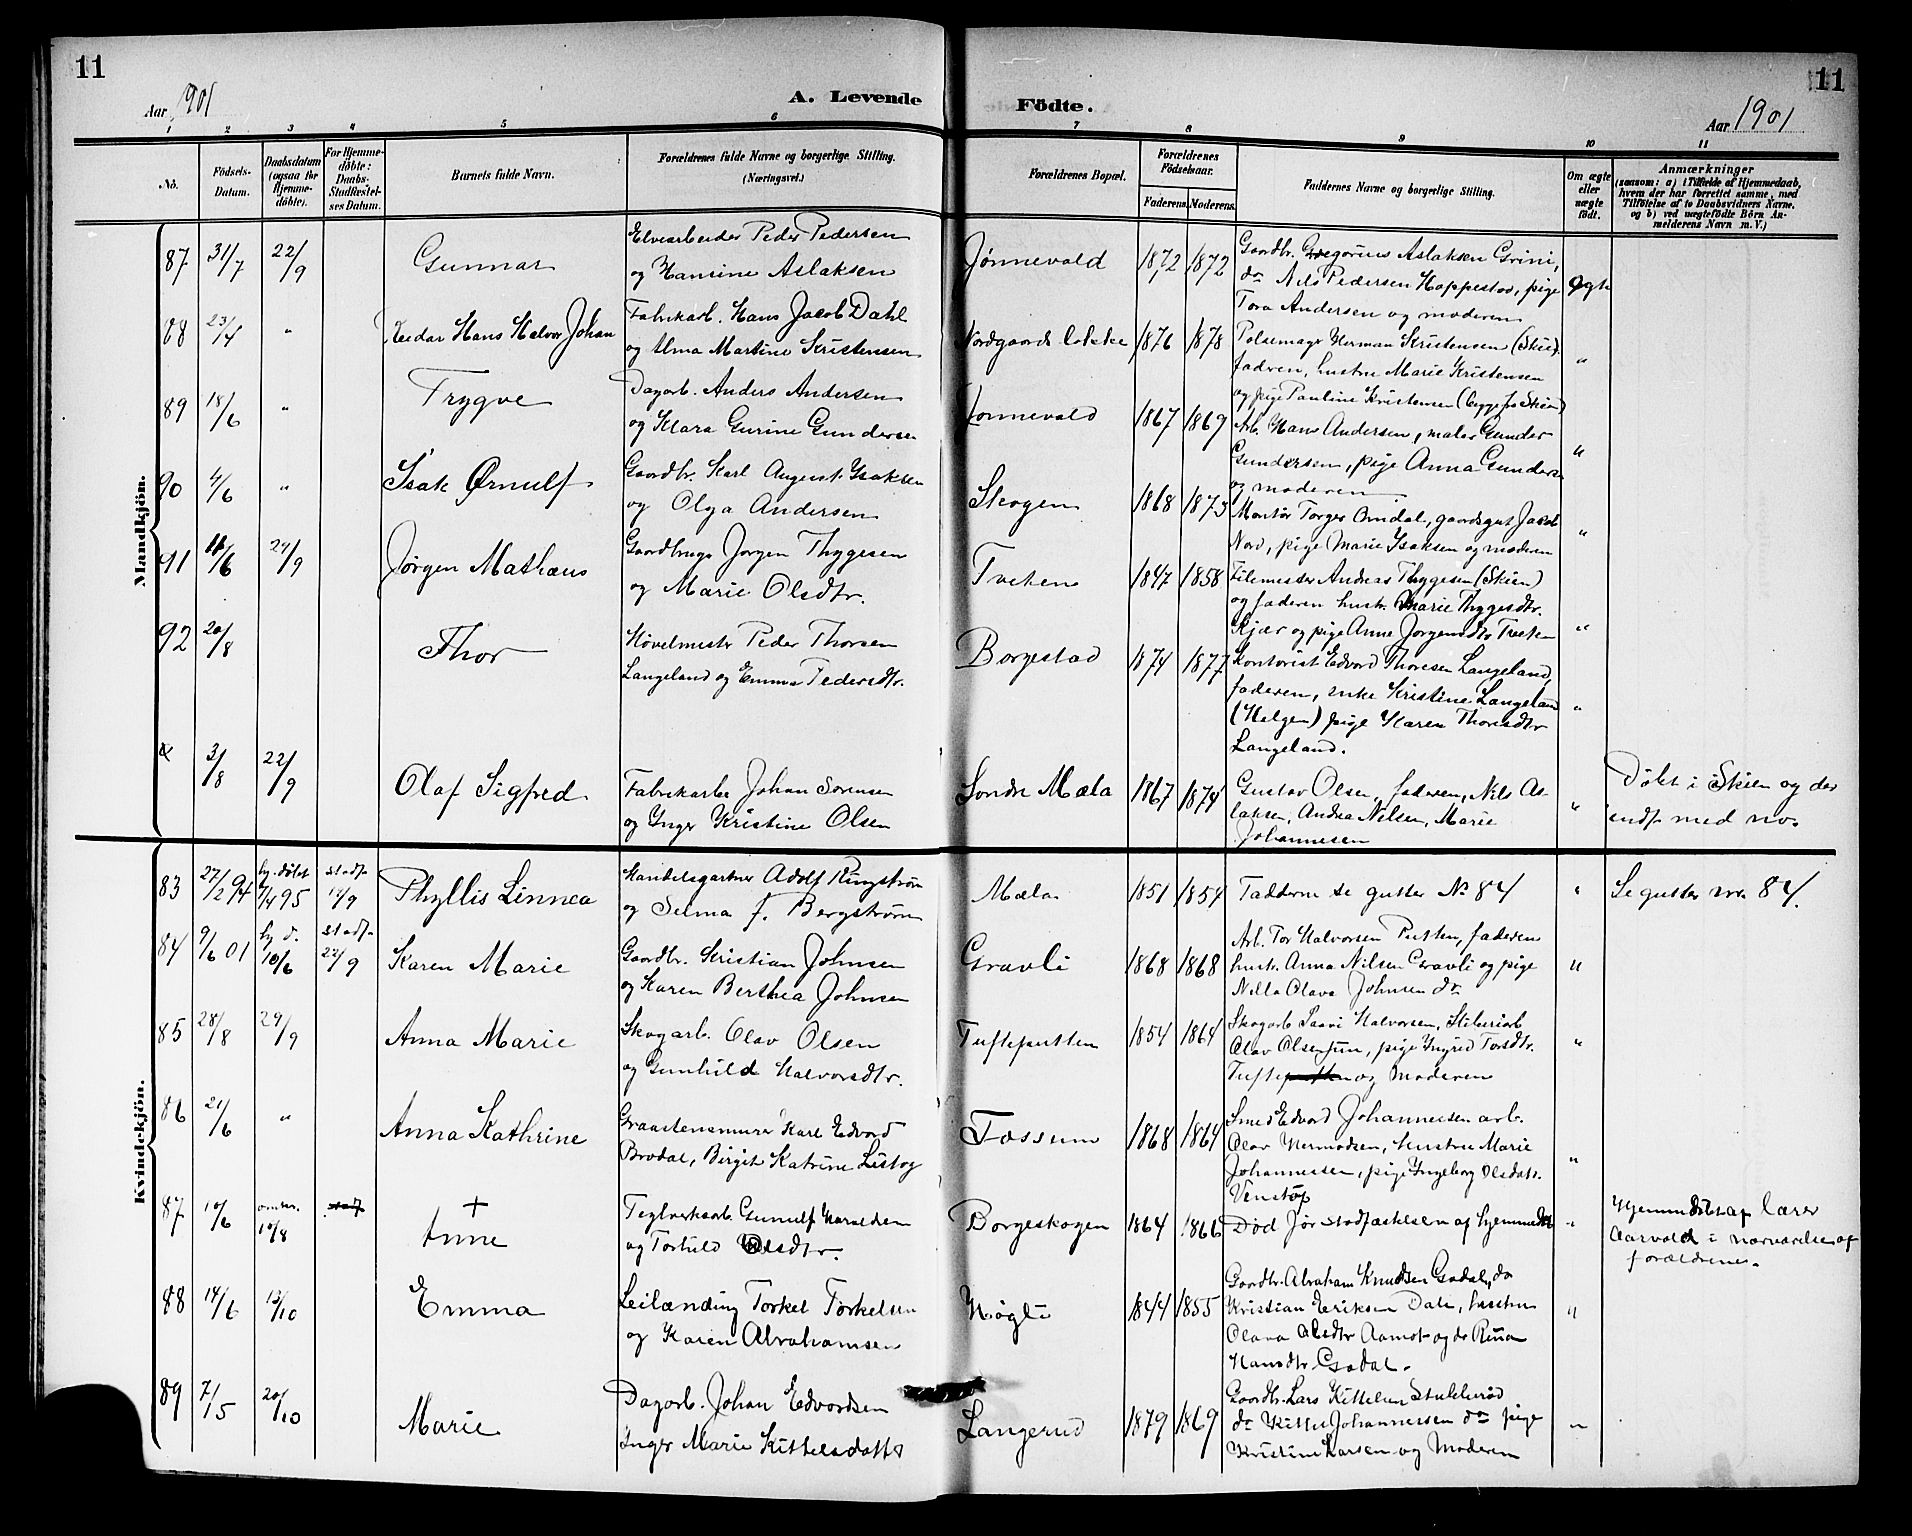 11
11
Aar 1901
A. Levende
Födte.
Aar 1901
1 2 3 4 5 6 7 8 9 10 11
No.
Födsels-
Datum.
Daabsdatum
(ogsaa for
Hjemme-
döbte).
For Hjemme-
döbte:
Daabs-
Stadfæstel-
ses Datum.
Barnets fulde Navn.
Forældrenes fulde Navne og borgerlige Stilling.
(Næringsvei.)
Forældrenes Bopæl.
Forældrenes
Födselsaar.
Faderens. Moderens.
Faddernes Navne og borgerlige Stilling.
Om ægte
eller
uægte
födt.
Anmærkninger
(saasom: a) i Tilfælde af Hjemmedaab,
hvem der har forrettet samme, med
Tilföielse af to Daabsvidners Navne.
og b) ved uægtefödte Börn An-
melderens Navn m. V.)
Mandkjön.
87 31/7 22/9 Gunnar
Elvearbeider Peder Pedersen
og Hansine Aslaksen
Jønnevald 1872 1872
Gaardbr. Gregorius Aslaksen Grini,
do Nils Pedersen Hoppestad, pige
Tora Andersen og moderen
ægte
88 23/4 " Reidar Hans Halvor Johan
Fabrikarb. Hans Jacob Dahl
og Alma Martine Kristensen
Nordgaards løkke 1876 1878
Pølsemager Herman Kristensen (Skien)
faderen, hustru Marie Kristensen
og pige Pauline Kristensen (begge fr Skien)
"
89 18/6 " Trygve
Dagarb. Anders Andersen
og Klara Gurine Gundersen
Jønnevald 1867 1869
Arb. Hans Andersen, maler Gunder
Gundersen, pige Anna Gunders
og moderen
"
90 4/6 " Isak Ørnulf
Gaardbr. Karl August Isaksen
og Olga Andersen
Skogen 1868 1873
Montør Torger Omdal, gaardsgut Jacob
Nord, pige Marie Isaksen og moderen
"
91 11/6 29/9 Jørgen Mathæus
Gaardbruger Jørgen Thygesen
og Marie Olsdtr.
Tveten 1847 1858
Filemester Andreas Thygesen (Skien)
og faderen hustr. Marie Thygesdtr.
Kjær og pige Anne Jørgensdtr Tveten
"
92 20/8 Thor
Høvelmestr Peder Thorsen
Langeland og Emma Pedersdtr.
Borgestad 1874 1877
Kontorist Edvard Thorsen Langeland,
faderen, enke Kristine Langeland
(Helgen) pige Karen Thorsdtr
Langeland.
"
3/8 22/9 Olaf Sigfred
Fabrikarb. Johan Sørensen
og Inger Kristine Olsen
Søndre Mæla 1867 1874
Gustav Olsen, faderen, Nils As-
laksen, Andrea Nilsen, Marie
Johannesen
"
Døbt i Skien og der
indf. med no.
Kvindekjön.
83 27/2 94 hj. døbt 7/4 95 stadf. 14/9 Phyllis Linnea
Handelsgartner Adolf Ringstrøm
og Selma F. Bergstrøm
Mæla 1851 1854
Fadderne se gutter No 84
"
Se gutter nr. 84.
84 9/6 01 hj. d. 10/6 stadf. 22/9 Karen Marie
Gaardbr. Kristian Johnsen
og Karen Berthea Johnsen
Gravli 1868 1868
Arb. Tor Halvorsen Putten, faderen
hustr. Anna Nilsen Gravli og pige
Nilla Olava Johnsen do
"
85 28/8 29/9 Anna Marie
Skogarb. Olav Olsen
og Gunhild Halvorsdtr.
Tufteputten 1854 1864
Skogarb Saavi Halvorsen, Sliberiarb
Olav Olsen jun, pige Ingrid Torsdtr.
Tufteputten og Moderen
"
86 21/6 " Anna Kathrine
Graastensmurer Karl Edvard
Brodal, Birgit Katrine Listog
Fossum 1868 1864
Smed Edvard Johannessen arb.
Olav Hermodsen, hustru Marie
Johannessen, pige Ingeborg Olsdatr.
Venstøp
"
87 10/6 10/8 stadf. + Anne
Teglverksarb. Gunulf Haraldsen
og Torhild Olsdtr.
Borgeskogen 1864 1866
Død før stadfæstelsen af hjemmedåb
"
Hjemmedøbt af lærer
Aarvold i nærværelse af
forældrene.
88 14/6 13/10 Emma
Leilænding Torkel Torkelsen
og Karen Abrahamsen
Høgli 1844 1855
Gaardbr. Abraham Knudsen Gødal, do
Kristian Eriksen Dale, hustru
Olava Olsdtr Aamot og do Rina
Hansdtr. Gsødal.
"
89 7/5 20/10 Marie
Dagarb. Johan Edvardsen
Inger Marie Kittelsdatter
Langerud 1879 1869
Gaardbr. Lars Kittelsen Stulenrød
do Kittel Johannessen do pige
Kristine Larsen og Moderen
"